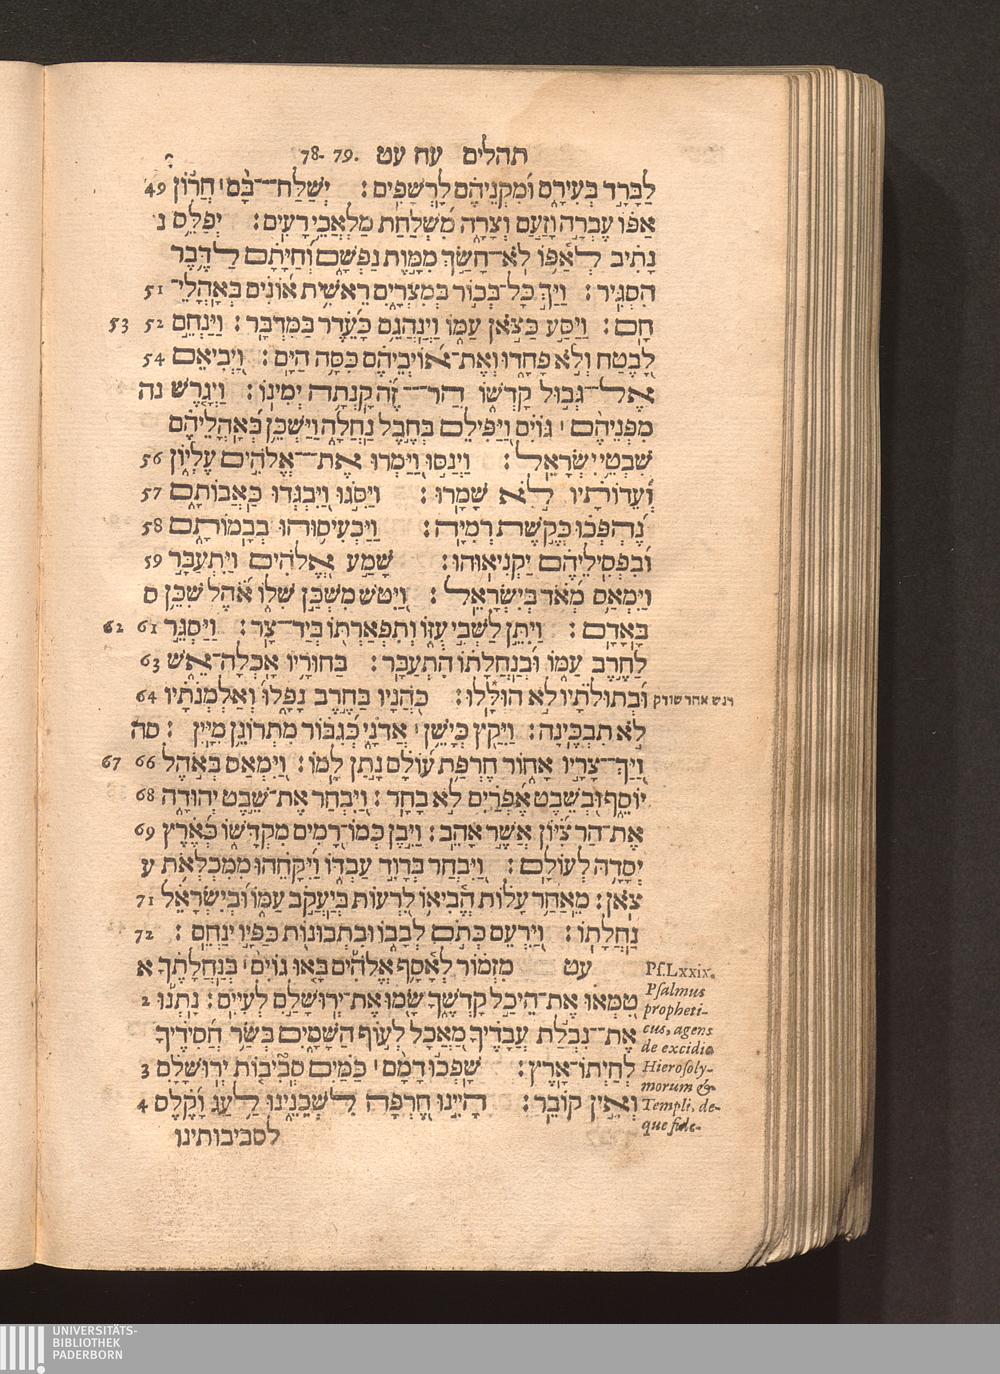 תהלים עח עט 78. 79.
לַבָּרָד בְּעִירָם וּמִקְנֵיהֶם לָרְשָׁפִים׃ יְשַׁלַּח־בָּם׀ חֲרוֹן 49
אַפּוֹ עֶבְרָה וָזַעַם וְצָרָה מִשְׁלַחַת מַלְאֲכֵי רָעִים׃ יְפַלֵּס נ
נָתִיב לְאַפּוֹ לֹא־חָשַׂךְ מִמָּוֶת נַפְשָׁם וְחַיָּתָם לַדֶּבֶר
הִסְגִּיר׃ וַיַּךְ כָּל־בְּכוֹר בְּמִצְרָיִם רֵאשִׁית אוֹנִים בְּאָהֳלֵי־ 51
חָם׃ וַיַּסַּע כַּצֹּאן עַמּוֹ וַיְנַהֲגֵם כָּעֵדֶר בַּמִּדְבָּר׃ וַיַּנְחֵם 52 53
לָבֶטַח וְלֹא פָחָדוּ וְאֶת־אוֹיְבֵיהֶם כִּסָּה הַיָּם׃ וַיְבִיאֵם 54
אֶל־גְּבוּל קָדְשׁוֹ הַר־זֶה קָנְתָה יְמִינוֹ׃ וַיְגָרֶשׁ נה
מִפְּנֵיהֶם׀ גּוֹיִם וַיַּפִּילֵם בְּחֶבֶל נַחֲלָה וַיַּשְׁכֵּן בְּאָהֳלֵיהֶם
שִׁבְטֵי יִשְׂרָאֵל׃ וַיְנַסּוּ וַיַּמְרוּ אֶת־אֱלֹהִים עֶלְיוֹן 56
וְעֵדוֹתָיו לֹא שָׁמָרוּ׃ וַיִּסֹּגוּ וַיִּבְגְּדוּ כַּאֲבוֹתָם 57
נֶהְפְּכוּ כְּקֶשֶׁת רְמִיָּה׃ וַיַּכְעִיסוּהוּ בְּבָמוֹתָם 58
וּבִפְסִילֵיהֶם יַקְנִיאוּהוּ׃ שָׁמַע אֱלֹהִים וַיִּתְעַבָּר 59
וַיִּמְאַס מְאֹד בְּיִשְׂרָאֵל׃ וַיִּטֹּשׁ מִשְׁכַּן שִׁלוֹ אֹהֶל שִׁכֵּן ס
בָּאָדָם׃ וַיִּתֵּן לַשְּׁבִי עֻזּוֹ וְתִפְאַרְתּוֹ בְיַד־צָר׃ וַיַּסְגֵּר 61 62
לַחֶרֶב עַמּוֹ וּבְנַחֲלָתוֹ הִתְעַבָּר׃ בַּחוּרָיו אָכְלָה־אֵשׁ 63
דגש אחר שורק וּבְתוּלֹתָיו לֹא הוּלָּלוּ׃ כֹּהֲנָיו בַּחֶרֶב נָפָלוּ וְאַלְמְנֹתָיו 64
לֹא תִבְכֶּינָה׃ וַיִּקַץ כְּיָשֵׁן׀ אֲדֹנָי כְּגִבּוֹר מִתְרוֹנֵן מִיָּיִן׃ סה
וַיַּךְ־צָרָיו אָחוֹר חֶרְפַּת עוֹלָם נָתַן לָמוֹ׃ וַיִּמְאַס בְּאֹהֶל 66 67
יוֹסֵף וּבְשֵׁבֶט אֶפְרַיִם לֹא בָחָר׃ וַיִּבְחַר אֶת־שֵׁבֶט יְהוּדָה 68
אֶת־הַר צִיּוֹן אֲשֶׁר אָהֵב׃ וַיִּבֶן כְּמוֹ־רָמִים מִקְדָּשׁוֹ כְּאֶרֶץ 69
יְסָדָהּ לְעוֹלָם׃ וַיִּבְחַר בְּדָוִד עַבְדּוֹ וַיִּקָּחֵהוּ מִמִּכְלְאֹת ע
צֹאן׃ מֵאַחַר עָלוֹת הֱבִיאוֹ לִרְעוֹת בְּיַעֲקֹב עַמּוֹ וּבְיִשְׂרָאֵל 71
נַחֲלָתוֹ׃ וַיִּרְעֵם כְּתֹם לְבָבוֹ וּבִתְבוּנוֹת כַּפָּיו יַנְחֵם׃ 72
עט מִזְמוֹר לְאָסָף אֱלֹהִים בָּאוּ גוֹיִם׀ בְּנַחֲלָתֶךָ א
טִמְּאוּ אֶת־הֵיכַל קָדְשֶׁךָ שָׂמוּ אֶת־יְרוּשָׁלִַם לְעִיִּים׃ נָתְנוּ 2
אֶת־נִבְלַת עֲבָדֶיךָ מַאֲכָל לְעוֹף הַשָּׁמָיִם בְּשַׂר חֲסִידֶיךָ
לְחַיְתוֹ־אָרֶץ׃ שָׁפְכוּ דָמָם׀ כַּמַּיִם סְבִיבוֹת יְרוּשָׁלִָם 3
וְאֵין קוֹבֵר׃ הָיִינוּ חֶרְפָּה לִשְׁכֵנֵינוּ לַעַג וָקֶלֶס 4
לסביבותינו
Ps. Lxxix.
Psalmus
propheti-
cus, agens
de excidio
Hierosoly-
morum &
Templi, de-
que fide-
UNIVERSITÄTS-
BIBLIOTHEK
PADERBORN